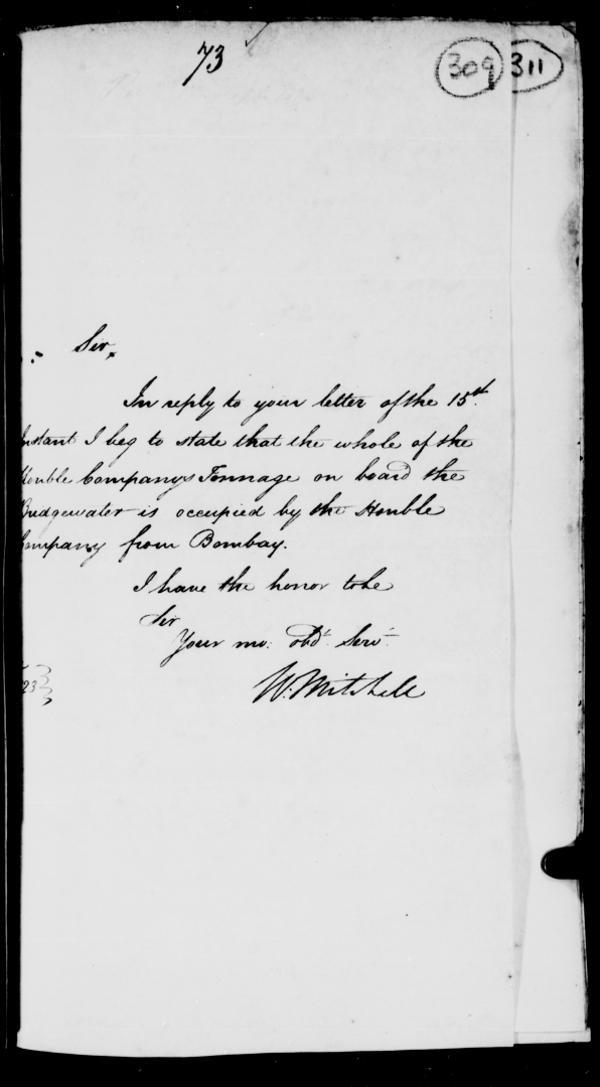 73
309 311
Sir,
In reply to your letter of the 15th
Instant I beg to state that the whole of the
Honble Companys Tonnage on board the
Bridgewater is occupied by the Honble
Company from Bombay.
I have the honor to be
Sir
Your mo: obdt. Servt.
23
W. Mitchell